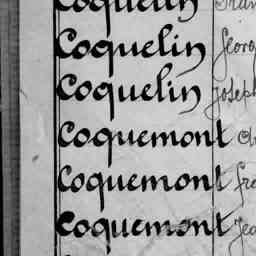 Coquelin
Coquelin Georg
Coquelin Joseph
Coquemont
Coquemont Fre
Coquemont Jea